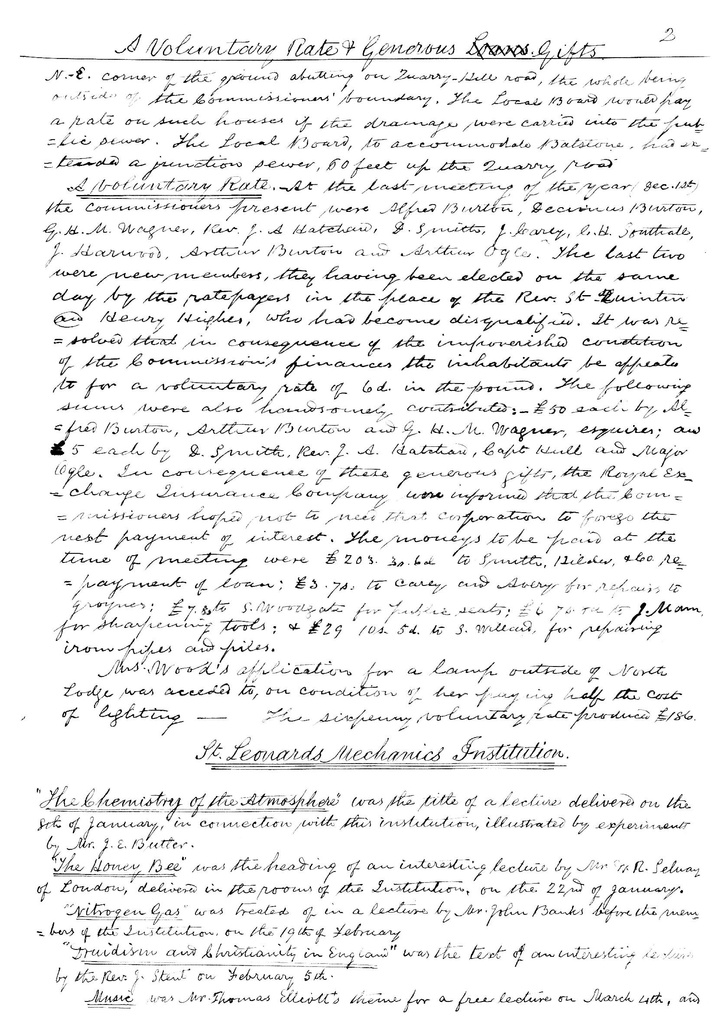 2
A Voluntary Rate & Generous Loans. Gifts.
N.-E. corner of the ground abutting on Quarry-Hill road, the whole being
outside of the Commissioners' boundary. The Local Board would pay
a rate on such houses if the drainage were carried into the pub-
=lic sewer. The Local Board, to accommodate Batstone, had ex-
=tended a junction sewer, 60 feet up the Quarry road
A Voluntary Rate. At the last meeting of the year (Dec. 1st)
the Commissioners present were Alfred Burton, Decimus Burton,
G. H. M. Wagner, Rev. J. A Hatchard, D. Smith, J. Carey, C. H. Southall,
J. Harwood, Arthur Burton and Arthur Ogle. The last two
were new members, they having been elected on the same
day by the ratepayers in the place of the Rev. St Quintin
and Henry Hughes, who had become disqualified. It was re=
=solved that in consequence of the impoverished condition
of the Commission's finances the inhabitants be appeale
to for a voluntary rate of 6d. in the pound. The following
sums were also handsomely contributed:- £50 each by Al-
=fred Burton, Arthur Burton and G. H. M. Wagner, esquires; and
£5 each by D. Smith, Rev. J. A. Hatchard, Capt Hull and Major
Ogle. In consequence of these generous gifts, the Royal Ex-
=change Insurance Company were informed that the Com-
=missioners hoped not to need that corporation to forego the
next payment of interest. The moneys to be paid at the
time of meeting were £203. 3s. 6d to Smith, Hilder, & Co. re-
=payment of loan; £3. 7s. to Carey and Avery for repairs to
groynes; £7. to S. Woodgate for public seats; £6 7s. to J. Mann,
for sharpening tools; & £29 10s. 5d. to S. Willard, for repairing
iron pipes and piles.
Mrs. Wood's application for a lamp outside of North
Lodge was acceded to, on condition of her paying half the cost
of lighting — The sixpenny voluntary rate produced £186.
St. Leonards Mechanics Institution.
"The Chemistry of the Atmosphere" was the title of a lecture delivered on the
8th of January, in connection with this institution, illustrated by experiments
by Mr. J. E. Butter.
"The Honey Bee" was the heading of an interesting lecture by Mr R. Selway
of London, delivered in the rooms of the Institution, on the 22nd of January.
"Nitrogen Gas" was treated of in a lecture by Mr. John Banks before the mem-
=bers of the Institution, on the 19th of February
"Druidism and Christianity in England" was the text of an interesting lecture
by the Rev. J. Stent on February 5th.
Music was Mr. Thomas Elliott's theme for a free lecture on March 4th, and